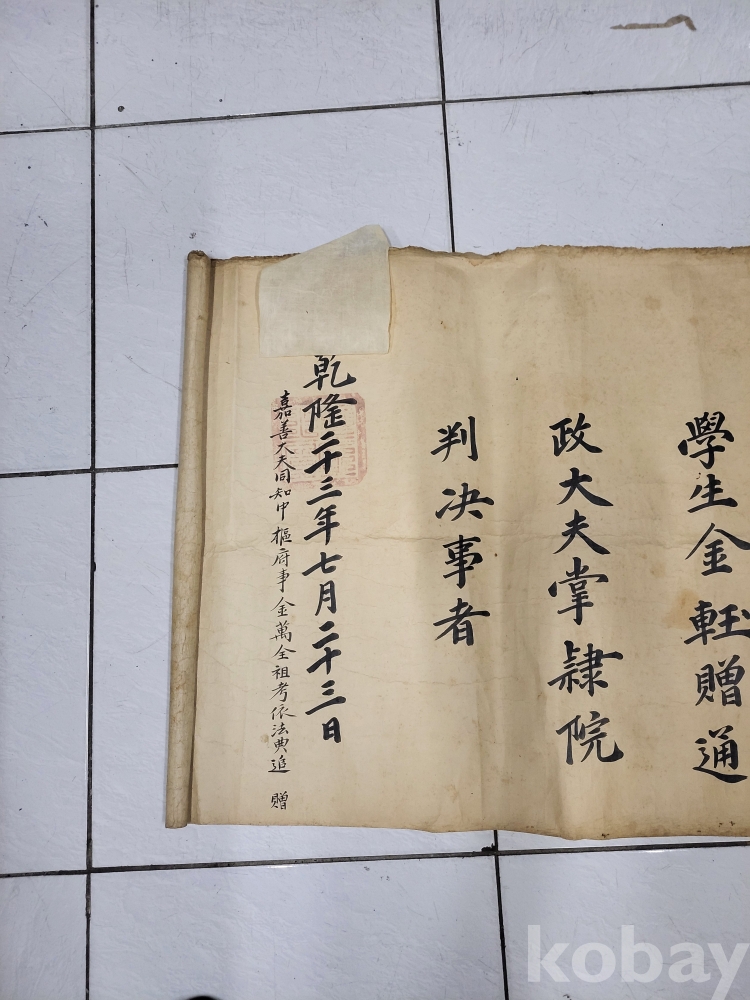 學生金䡛贈通
政大夫掌隷院
判决事者
乾隆二十三年七月二十三日
嘉善大夫同知中樞府事金萬全祖考依法典追 贈
kobay